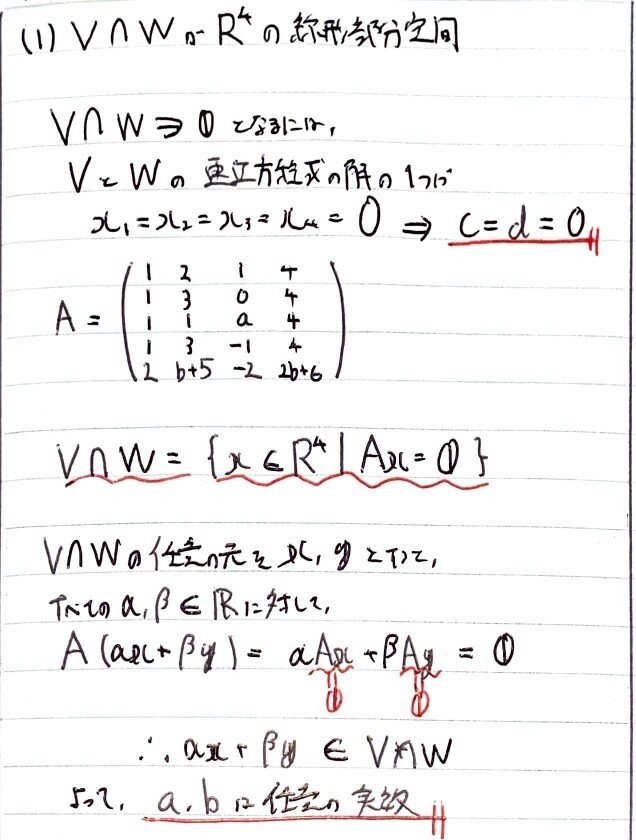 (1) V∩W が R⁴ の線形部分空間
V∩W ∋ 0 となるには,
VとWの連立方程式の解の1つが
x₁=x₂=x₃=x₄=0 ⇒ c=d=0
A = ( 1 2 1 4
1 3 0 4
1 1 a 4
1 3 -1 4
2 b+5 -2 2b+6 )
V∩W = {x∈R⁴ | Ax=0}
V∩Wの任意の元を x, y とすて,
すべての α,β∈R に対して,
A(αx+βy) = αAx+βAy = 0
0 0
∴ αx+βy ∈ V∩W
よって, a,bは任意の実数